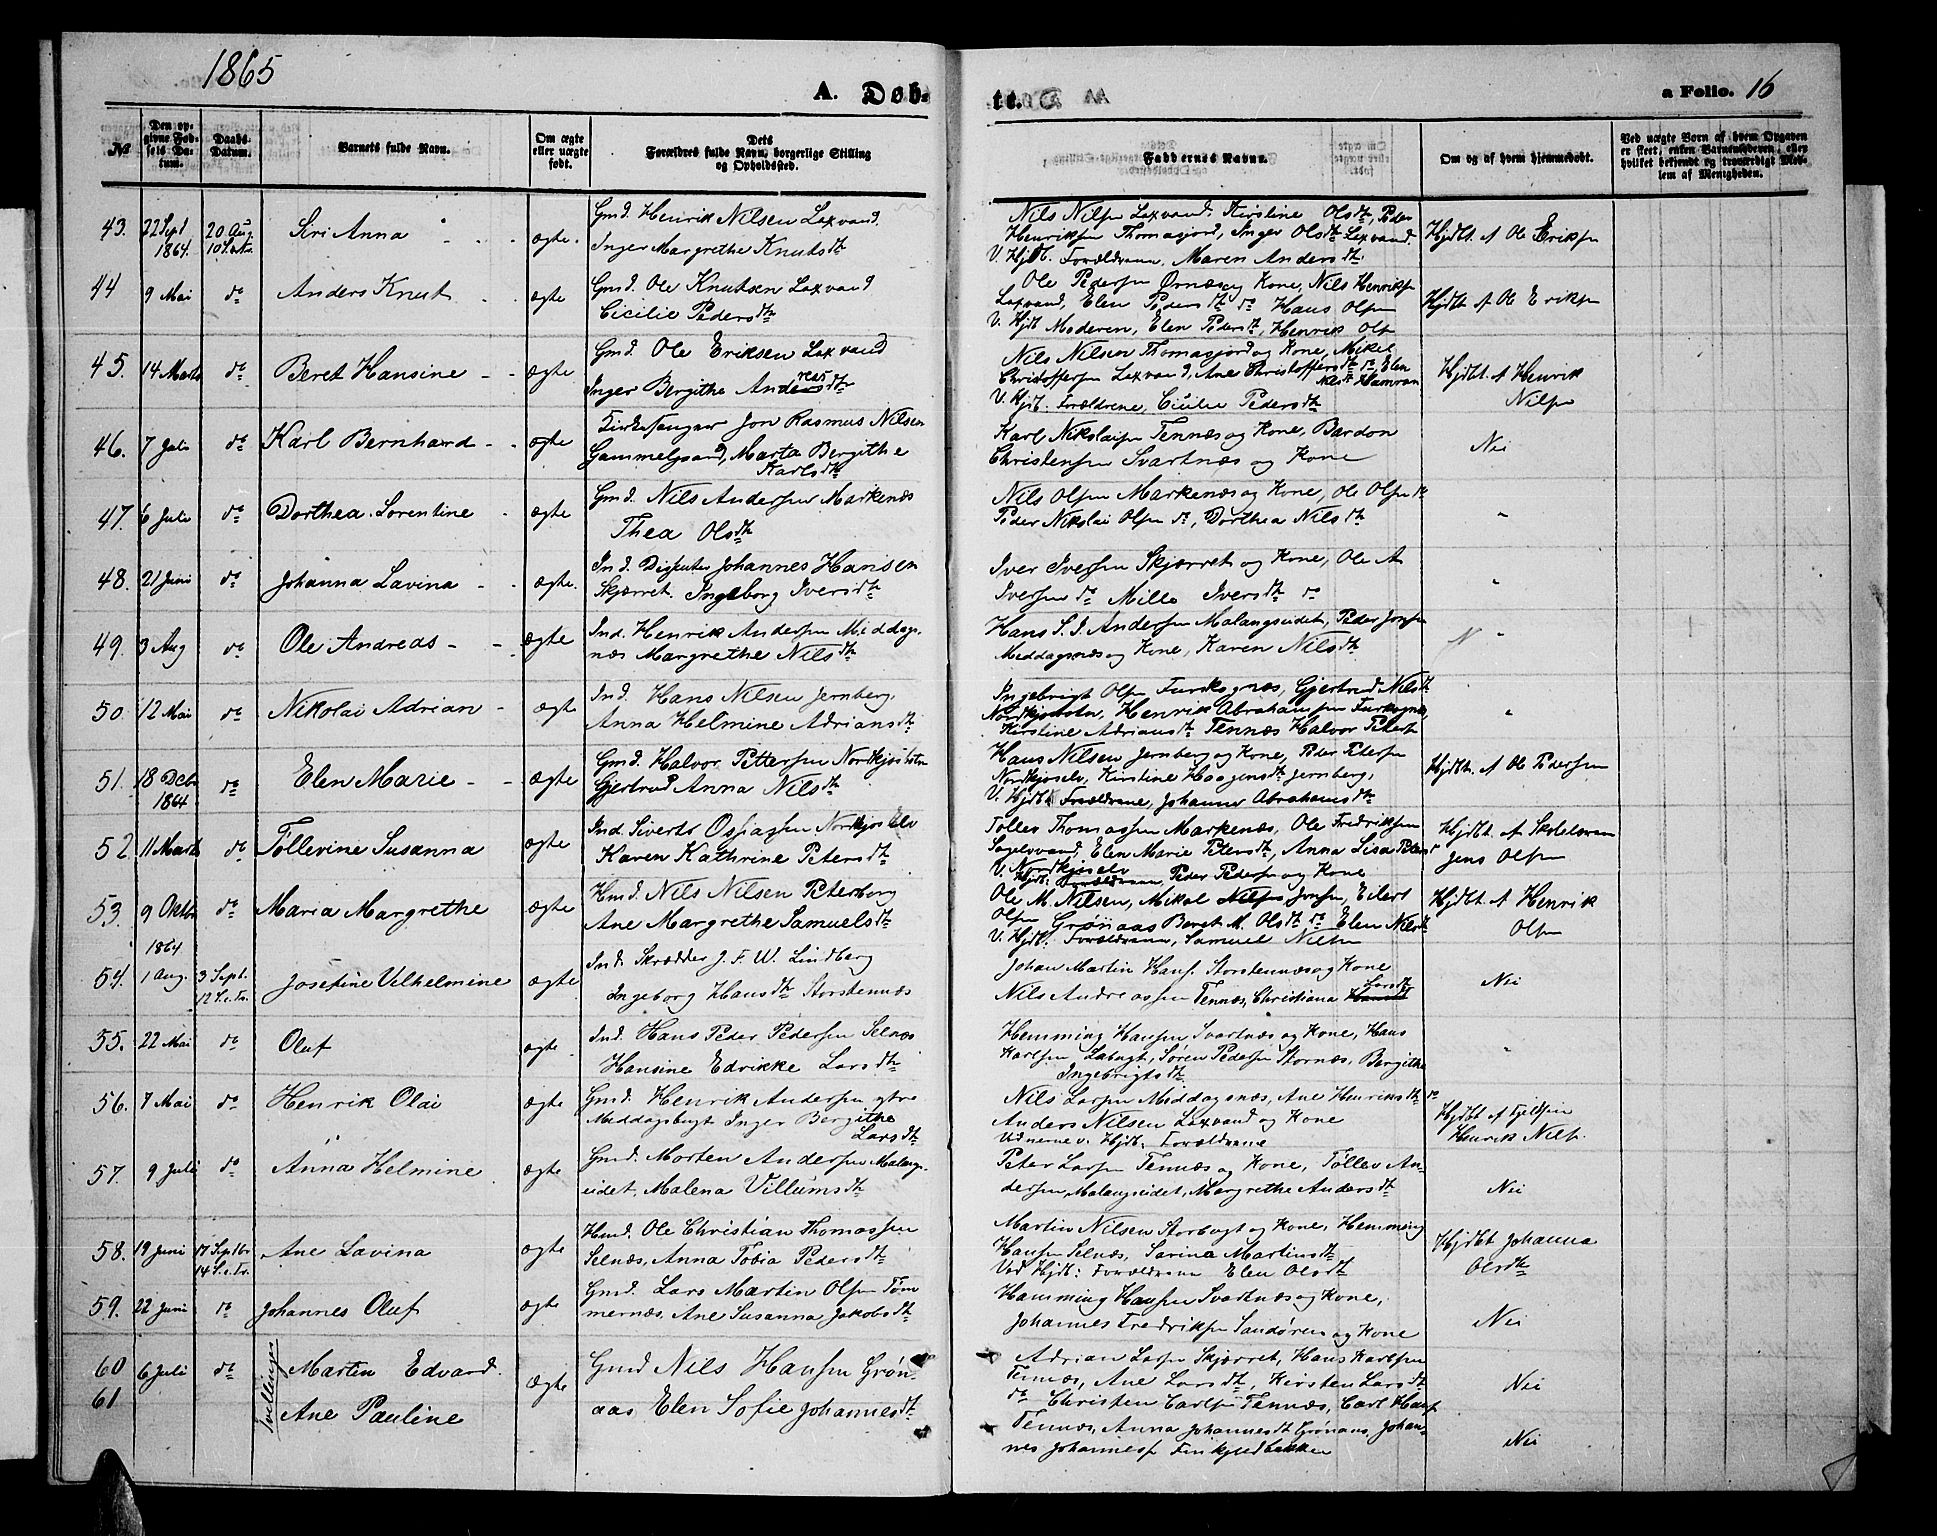 1865
A. Døb-
te.
a Folio. 16
№
Den opgivne Fødsels Datum.
Daabs-Datum.
Barnets fulde Navn.
Om ægte eller uægte født.
Dets Forældres fulde Navn, borgerlige Stilling og Opholdssted.
Faddernes Navn.
Om og af hvem hjemmedøbt.
Ved uægte Børn af hvem Opgaven er skeet, enten Barnemoderen, eller hvilket bekjendt og troværdigt Medlem af Menigheden.
43. 22 Sept 1864. 20 Aug. 10 S.e.Tr. Siri Anna ægte. Gmd. Henrik Nilsen Laxvand.
Inger Margrethe Knutsdtr
Nils Nilsen Laxvand. Kirstine Olsdtr, Peder
Henriksen Thomasjord, Inger Olsdtr Laxvand.
V. Hjdt. Forældrene, Maren Andersdtr.
Hjdbt. af Ole Eriksen
44 9 Mai do Anders Knut ægte Gmd. Ole Knutsen Laxvand
Cicilie Pedersdtr
Ole Pedersen Ørnæs og Kone, Nils Henriksen
Laxvand, Elen Pedersdtr do Hans Olsen
V. Hjdt Moderen, Elen Pedersdtr, Henrik Olsen
Hjdbt af Ole Eriksen
45. 14 Marts do Beret Hansine ægte Gmd. Ole Eriksen Laxvand
Inger Bergithe Andreasdtr
Nils Nilsen Thomasjord og Kone, Mikel
Christoffersen Laxvand, Ane Christoffersdtr do, Elen
V. Hjdt. Forældrene, Cicilie Pedersdtr
Hjdbt. af Henrik
Nilsen
46. 7 Juli do Karl Bernhard ægte Kirkesanger Jon Rasmus Nilsen
Gammelgaard, Marta Bergithe
Karlsdtr
Karl Nikolaisen Tennæs og Kone, Bardon
Christensen Svartnæs og Kone
Nei
47. 6 Juli do Dorthea Lorentine ægte Gmd. Nils Andersen Markenæs
Thea Olsdtr
Nils Olsen Markenæs og Kone, Ole Olsen do
Peder Nikolai Olsen do, Dorthea Nilsdtr
"
48. 21 Juni do Johanna Lavina ægte. Ind. Dissenter Johannes Hansen
Skjærret. Ingeborg Iversdtr
Iver Iversen Skjærret og Kone, Ole A
Iversen do Mille Iversdtr do
"
49. 3 Aug do Ole Andreas ægte Ind. Henrik Andersen Middags-
næs Margrethe Nilsdtr
Hans S. J. Andersen Malangseidet, Peder Jonsen
Meddagsnæs og Kone, Karen Nilsdtr
"
50. 12 Mai do Nikolai Adrian ægte Ind. Hans Nilsen Jernberg,
Anna Helmine Adriansdtr
Ingebrigt Olsen Furskognæs, Gjertrud Nilsdtr
Nordkjosbotn, Henrik Abrahamsen
Kirstine Adriansdtr Tennæs Halvor Petersen
"
51. 18 Decbr 1864 do Elen Marie ægte Gmd. Halvor Pettersen Nordkjosbotn
Gjertrud Anna Nilsdtr
Hans Nilsen Jernberg og Kone, Peder Petersen
Nordkjoselv, Kirstine Haagensdtr Jernberg,
V. Hjdbt Forældrene, Johanna Abrahamsdtr
Hjdbt. af Ole Pedersen
52 11 Marts do Tøllevine Susanna ægte Ind. Siverts Ospiasen Nordkjoselv
Karen Kathrine Petersdtr
Tølles Thomassen Markenæs, Ole Fredriksen
Sagelvvand, Elen Marie Petersdtr, Anna Lisa Petersdtr
Nordkjoselv
V. Hjdt: Forældrene, Peder Pedersen og Kone
Hjdbt. af Skolelærer
Jens Olsen
53. 9 Oktbr 1864 do Maria Margrethe ægte Hmd. Nils Nilsen Peterborg
Ane Margrethe Samuelsdtr
Ole M. Nilsen, Mikal Nilsen Jonsen, Edert
Olsen Grønaas Beret M. Olsdtr do Elen Nilsdtr
V. Hjdt. Forældrene, Samuel Nilsen
Hjdbt. af Henrik
Olsen
54. 1 Aug. 3 Sept. 12 S.e.Tr. Josefine Vilhelmine ægte Ind. Skrædder J. F. W. Lindberg
Ingeborg Hansdtr Storstennæs
Johan Martin Hans. Storstennæs og Kone
Nils Andreassen Tennæs, Christiana Larsdtr
Nei
55. 22 Mai do Oluf ægte Ind. Hans Peder Pedersen Selnæs
Hansine Edrikke Larsdtr
Hemming Hansen Svartnæs og Kone, Hans
Karlsen, Søren Pedersen Stornæs, Bergithe
Ingebrigtsdtr
"
56. 7 Mai do Henrik Olai ægte Gmd. Henrik Andersen ytre
Meddagsbugt Inger Bergithe
Larsdtr
Nils Larsen Middagsnæs, Ane Henriksdtr do
Anders Nilsen Laxvand og Kone
Vidnerne v. Hjdt. Forældrene
Hjdbt af Fjeldfin
Henrik Nilsen
57. 9 Juli do Anna Helmine ægte Gmd. Morten Andersen Malangs-
eidet, Malena Villumsdtr
Peter Larsen Tennæs og Kone, Tøllev An-
dersen Malangseidet, Margrethe Andersdtr
Nei
58. 19 Juni 17 Septbr 14 S.e.Tr. Ane Lavina ægte Hmd. Ole Christian Thomassen
Selnæs, Anna Tobia Pedersdtr
Martin Nilsen Storbugt og Kone, Hemming
Hansen Selnæs, Sarina Martinsdtr
Ved Hjdt: Forældrene Elen Olsdtr
Hjdbt Johanna
Olsdtr
59. 22 Juni do Johannes Oluf ægte Gmd. Lars Martin Olsen Tøm-
mernæs, Ane Susanna Jakobsdtr
Hemming Hansen Svartnæs og Kone,
Johannes Fredriksen Sandøren og Kone
Nei
60 6 Juli do Tvillinger Martin Edvard. ægte Gmd Nils Hansen Grøn-
61 Ane Pauline aas Elen Sofie Johannesdtr
Adrian Larsen Skjærret, Hans Karlsen
Tennæs, Ane Larsdtr, Kirsten Larsdtr
do Christen Carlsen Tennæs, Carl Hansen
Tennæs, Anna Johannesdtr Grønaas, Johan-
nes Johannesen
Nei
Nei